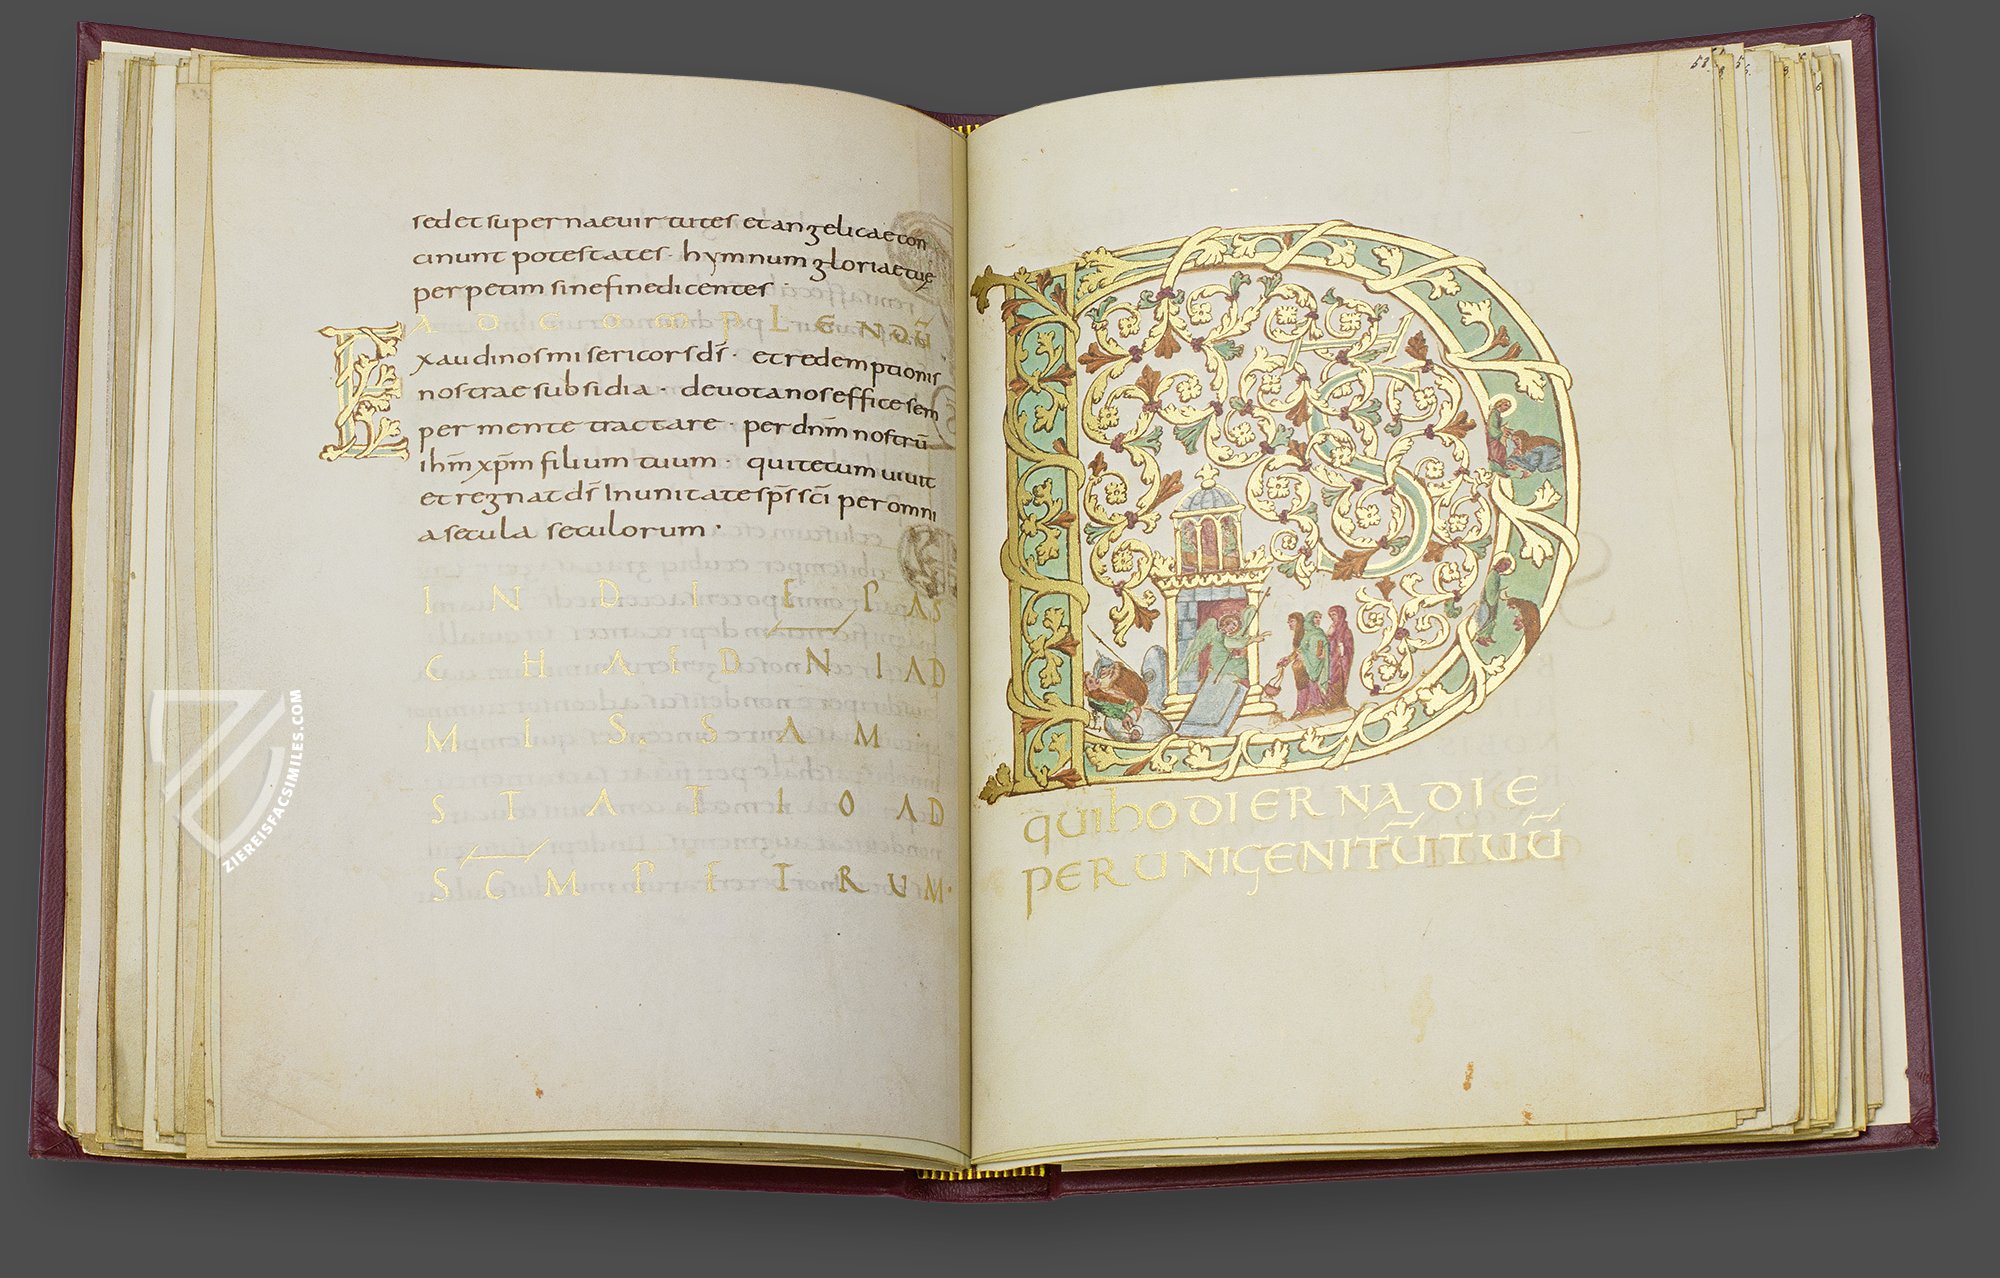 sed et supernae uirtutes et angelicae con
cinunt potestates · hymnum gloriae tuę
perpetim sine fine dicentes ·
AD COMPLENDŪ
Exaudi nos misericors d̄s · et redemptionis
nostrae subsidia · deuota nos effice sem
per mente tractare · per dn̄m nostrū
ih̄m xp̄m filium tuum · qui tecum uiuit
et regnat d̄s In unitate sp̄s sc̄i per omni
a secula seculorum ·
IN DIE PAS
CHAE DNI AD
MISSAM ·
STATIO AD
SCM PETRUM ·
DS
qui hodierna die
per unigenitū tuū
ZIEREISFACSIMILES.COM